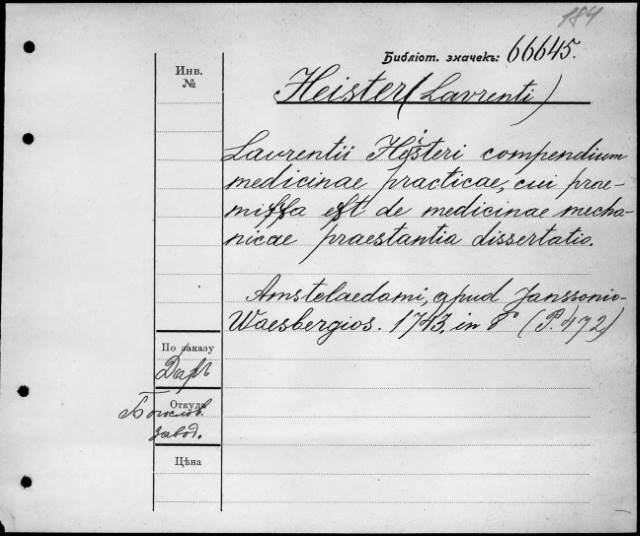 184
Библіот. значекъ: 66645.
Инв.
№
Heister (Lavrenti)
Laurentii Heisteri compendium
medicinae practicae, cui prae-
missa est de medicinae mecha-
nicae praestantia dissertatio.
Amstelaedami, apud Janssonio-
Waesbergios. 1743. in 8° (P. 472)
По заказу
Даръ
Откуда
Богослов.
завод.
Цѣна